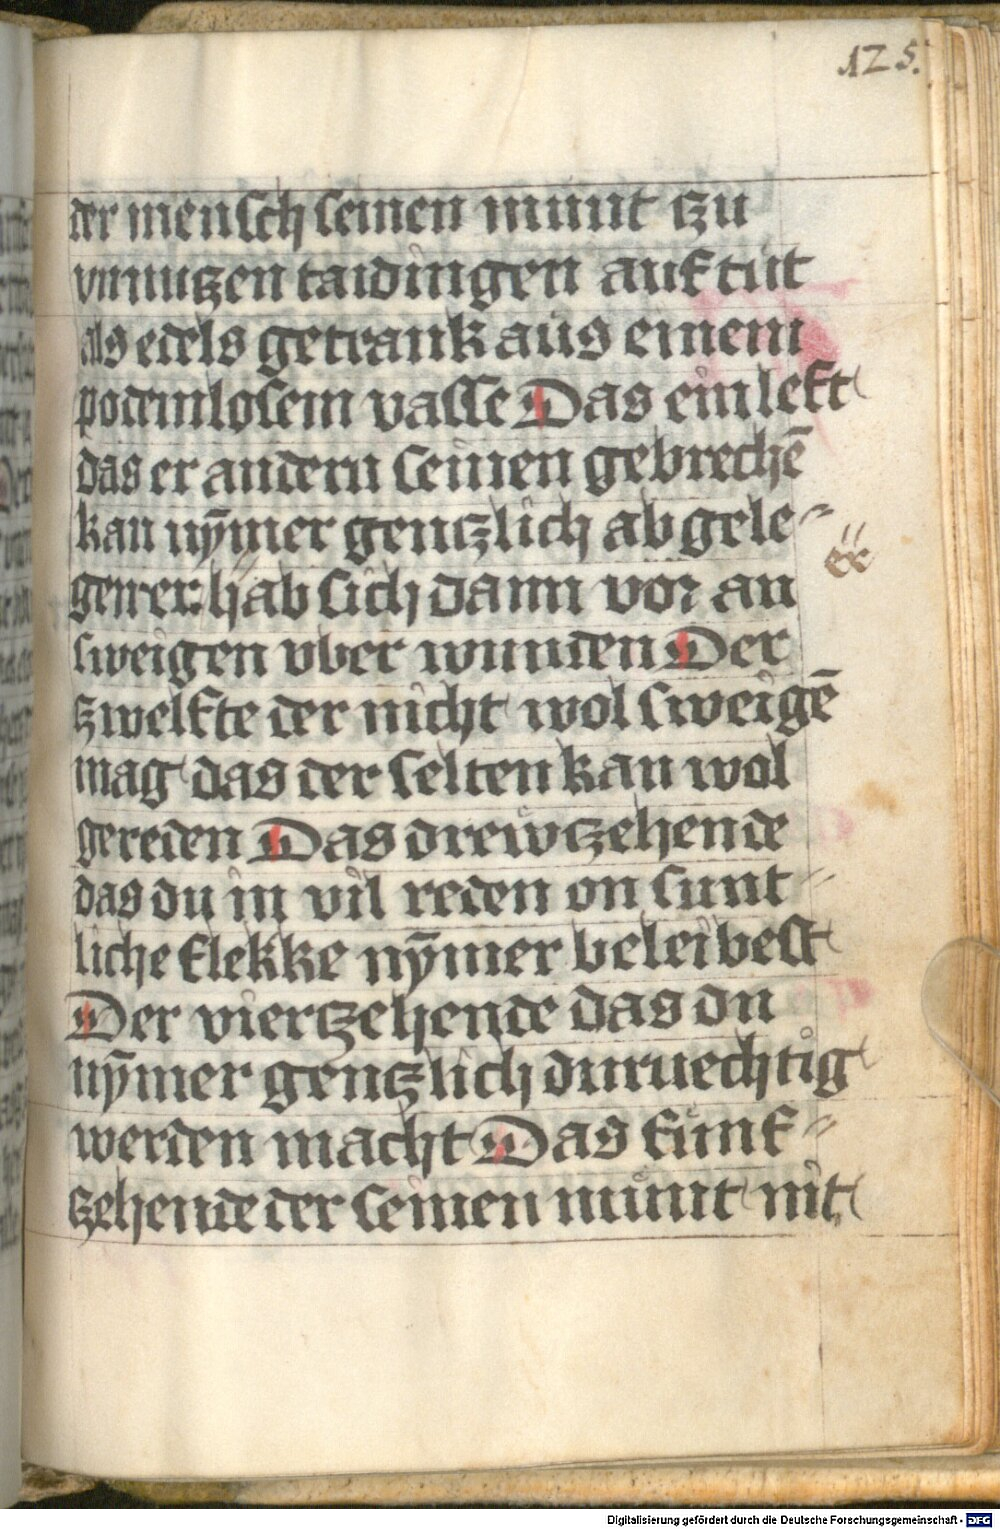 125.
der mensch seinen munt tzu
vnnutzen taidingen auf tut
als edels getrank aus einem
podemlosem vasse Das einleft
das er andern seinen gebrechē
kan nȳmer gentzlich ab gele〃
gen er hab sich dann vor an
er
sweigen vber wunden Der
zwelfte der nicht wol sweigē
mag das der selten kan wol
gereden Das drewtzehende
das du in vil reden on sunt〃
liche flekke nȳmer beleibest
Der viertzehende das du
nȳmer gentzlich duruechtig
werden macht Das funf〃
tzehende der seinen munt nit
Digitalisierung gefördert durch die Deutsche Forschungsgemeinschaft - DFG